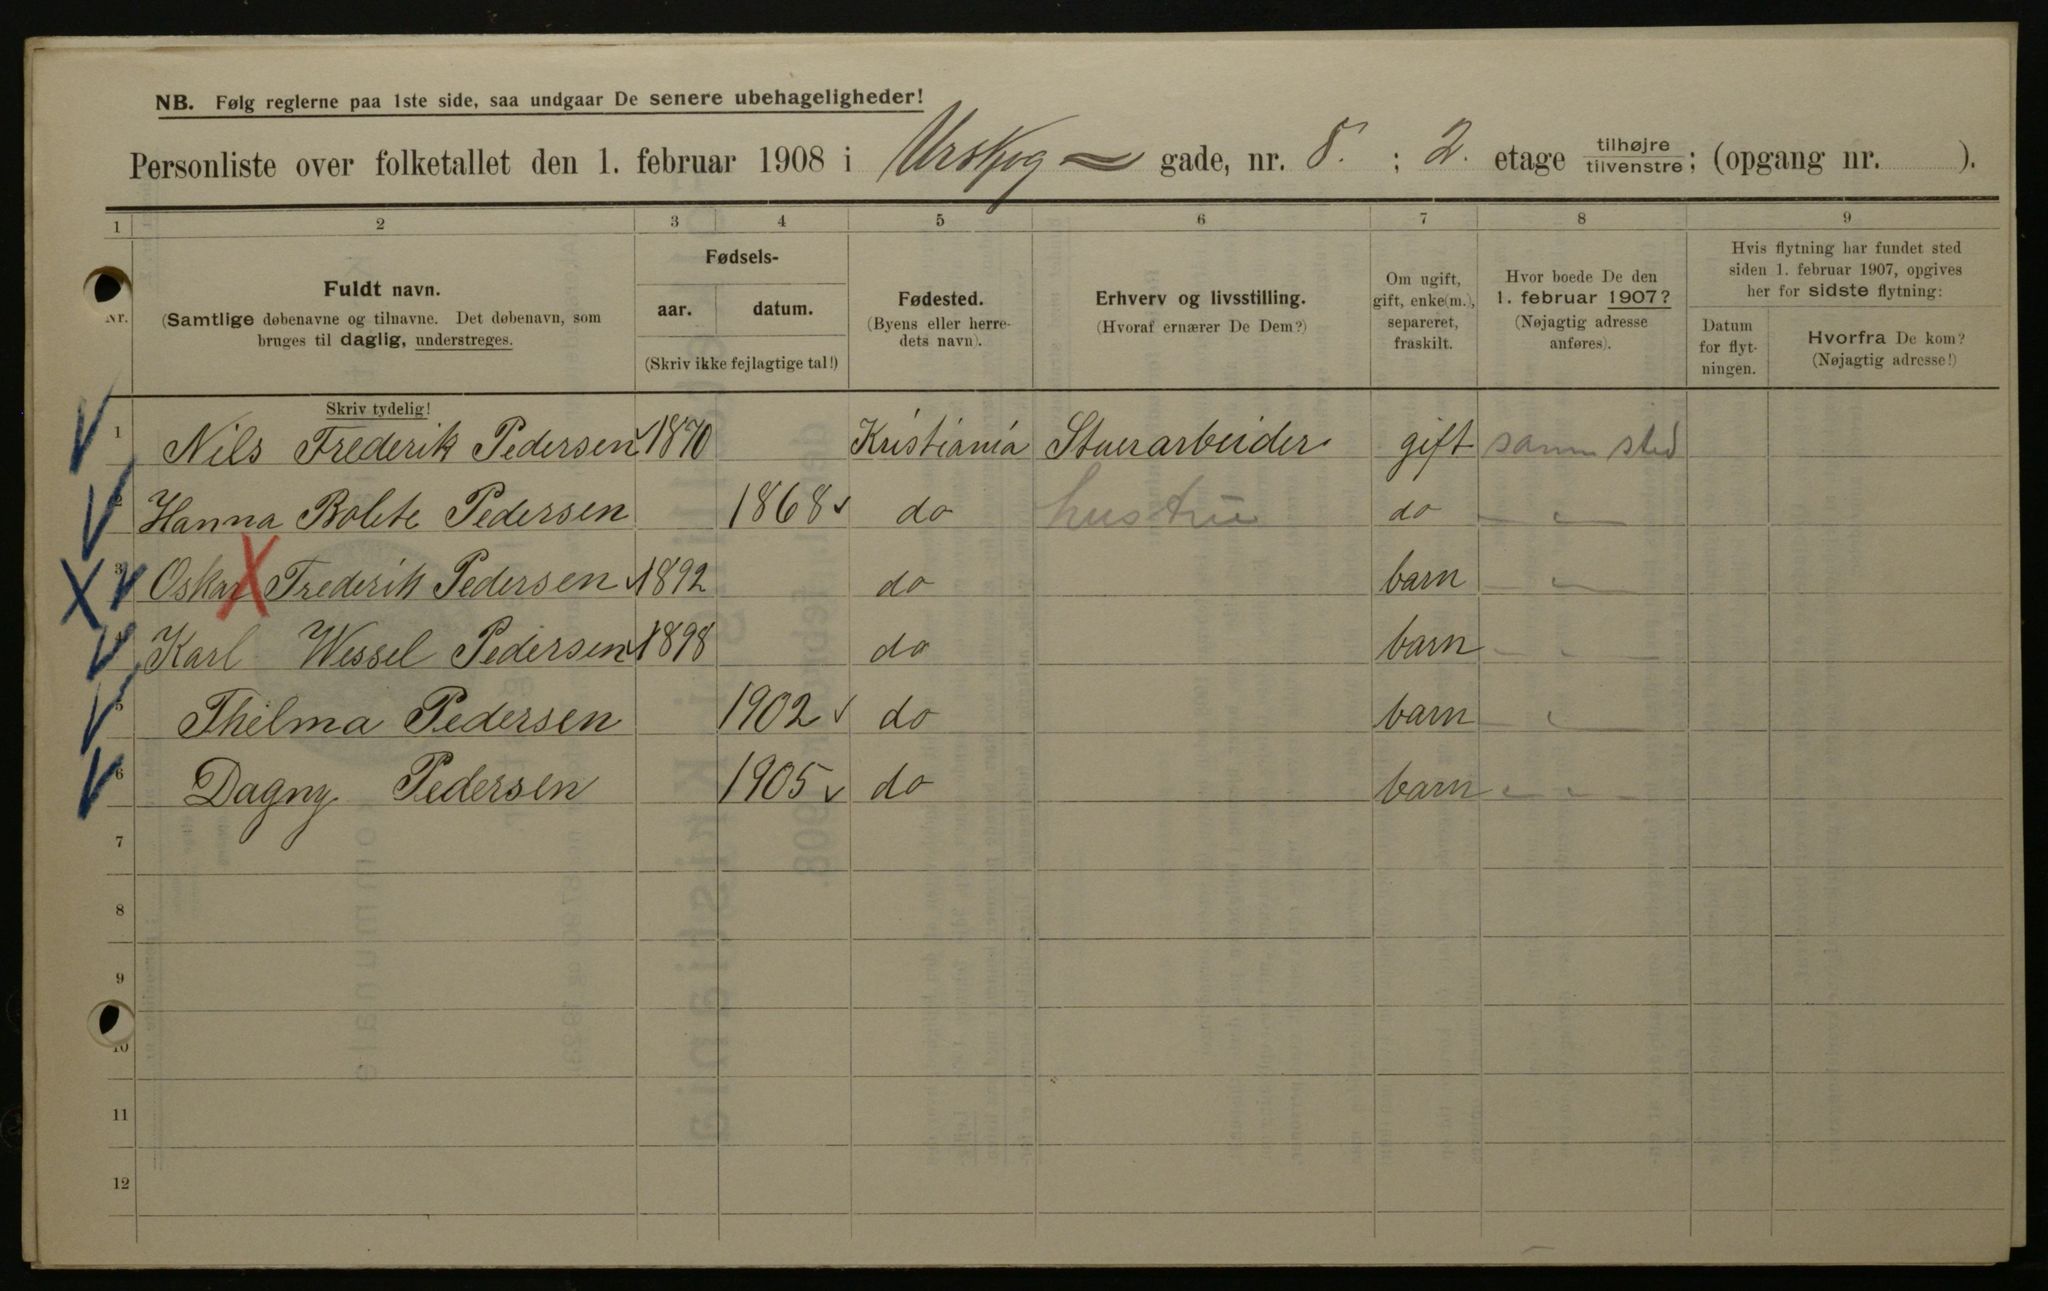 NB. Følg reglerne paa 1ste side, saa undgaar De senere ubehageligheder!
Personliste over folketallet den 1. februar 1908 i Urskog gade, nr. 8. ; 2. etage tilhøjre tilvenstre; (opgang nr. ).
1 2 3 4 5 6 7 8 9
Nr.
Fuldt navn.
(Samtlige døbenavne og tilnavne. Det døbenavn, som
bruges til daglig, understreges.
Fødsels-
aar. datum.
(Skriv ikke fejlagtige tal!)
Fødested.
(Byens eller herre-
dets navn).
Erhverv og livsstilling.
(Hvoraf ernærer De Dem?)
Om ugift,
gift, enke(m.),
separeret,
fraskilt.
Hvor boede De den
1. februar 1907?
(Nøjagtig adresse
anføres).
Hvis flytning har fundet sted
siden 1. februar 1907, opgives
her for sidste flytning:
Datum
for flyt-
ningen.
Hvorfra De kom?
(Nøjagtig adresse!)
Skriv tydelig!
1 Nils Frederik Pedersen 1870 Kristiania Stuerarbeider gift samme sted
2 Hanna Bolete Pedersen 1868 do hustru do
3 Oskar Frederik Pedersen 1892 do barn
4 Karl Wessel Pedersen 1898 do barn
5 Thelma Pedersen 1902 do barn
6 Dagny Pedersen 1905 do barn
7
8
9
10
11
12